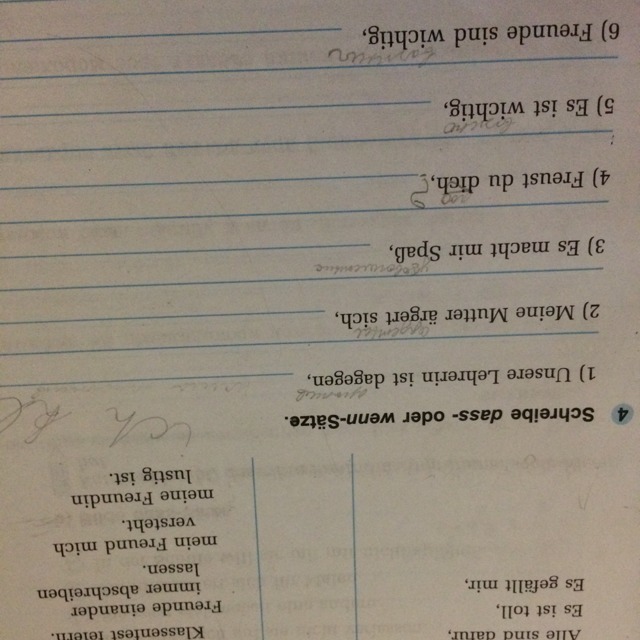 Alle sind dafür,
Es ist toll,
Es gefällt mir,
Klassenfest feiern.
Freunde einander
immer abschreiben
lassen.
mein Freund mich
versteht.
meine Freundin
lustig ist.
4 Schreibe dass- oder wenn-Sätze.
1) Unsere Lehrerin ist dagegen,
2) Meine Mutter ärgert sich,
3) Es macht mir Spaß,
4) Freust du dich,
5) Es ist wichtig,
6) Freunde sind wichtig,